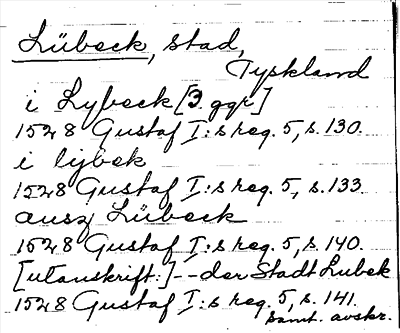 Lübeck, stad,
Tyskland
i Lybeck [3 ggr]
1528 Gustaf I:s reg. 5, s. 130.
i lijbek
1528 Gustaf I:s reg. 5, s. 133.
ausz Lübeck
1528 Gustaf I:s reg. 5, s. 140.
[utanskrift:] -- der Stadt Lubek
1528 Gustaf I:s reg. 5, s. 141.
samt. avskr.